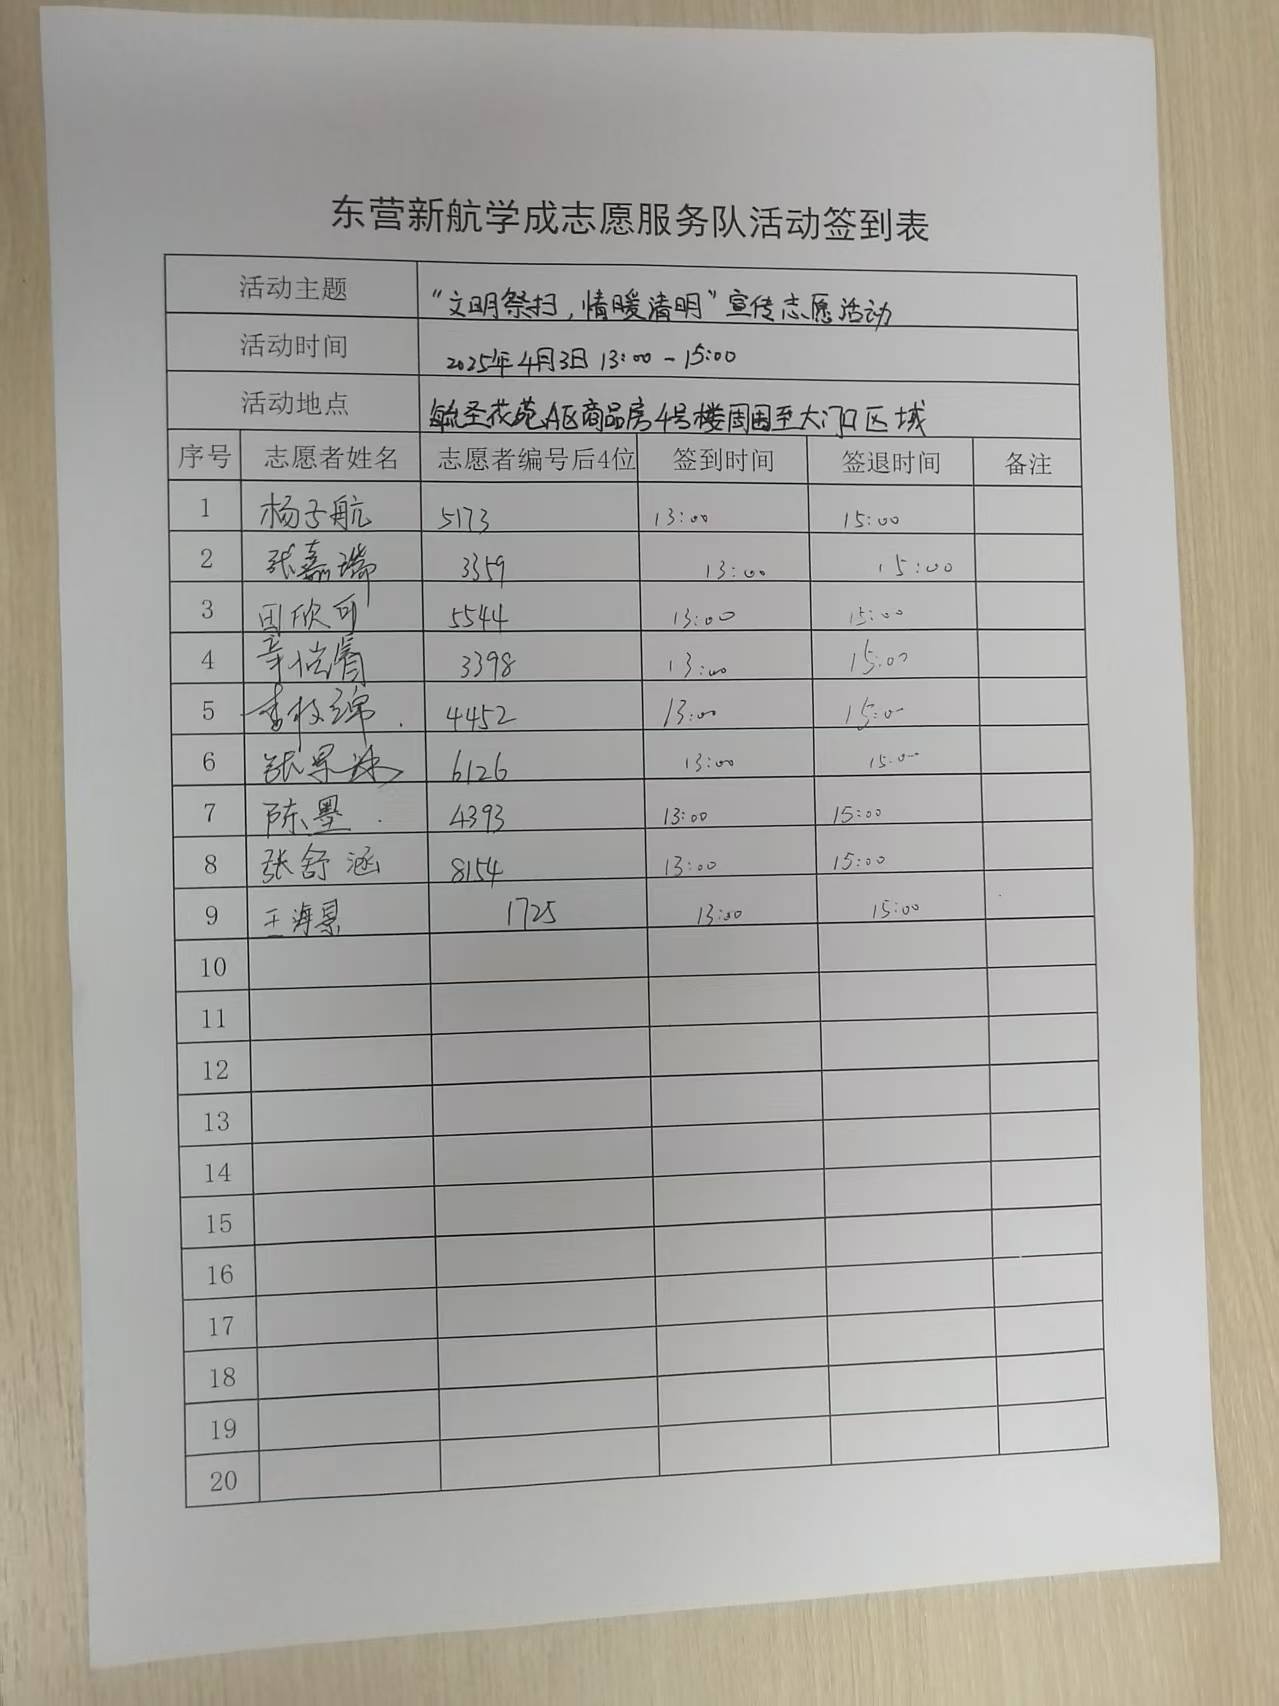 东营新航学成志愿服务队活动签到表
活动主题 “文明祭扫,情暖清明”宣传志愿活动
活动时间 2025年4月3日 13:00-15:00
活动地点 毓圣花苑A区商品房4号楼周围至大门口区域
序号 志愿者姓名 志愿者编号后4位 签到时间 签退时间 备注
1 杨子航 5173 13:00 15:00
2 张嘉瑞 3359 13:00 15:00
3 田欣可 5544 13:00 15:00
4 3398 13:00 15:00
5 4452 13:00 15:00
6 6126 13:00 15:00
7 陈墨 4393 13:00 15:00
8 张舒涵 8154 13:00 15:00
9 王海景 1725 13:00 15:00
10
11
12
13
14
15
16
17
18
19
20